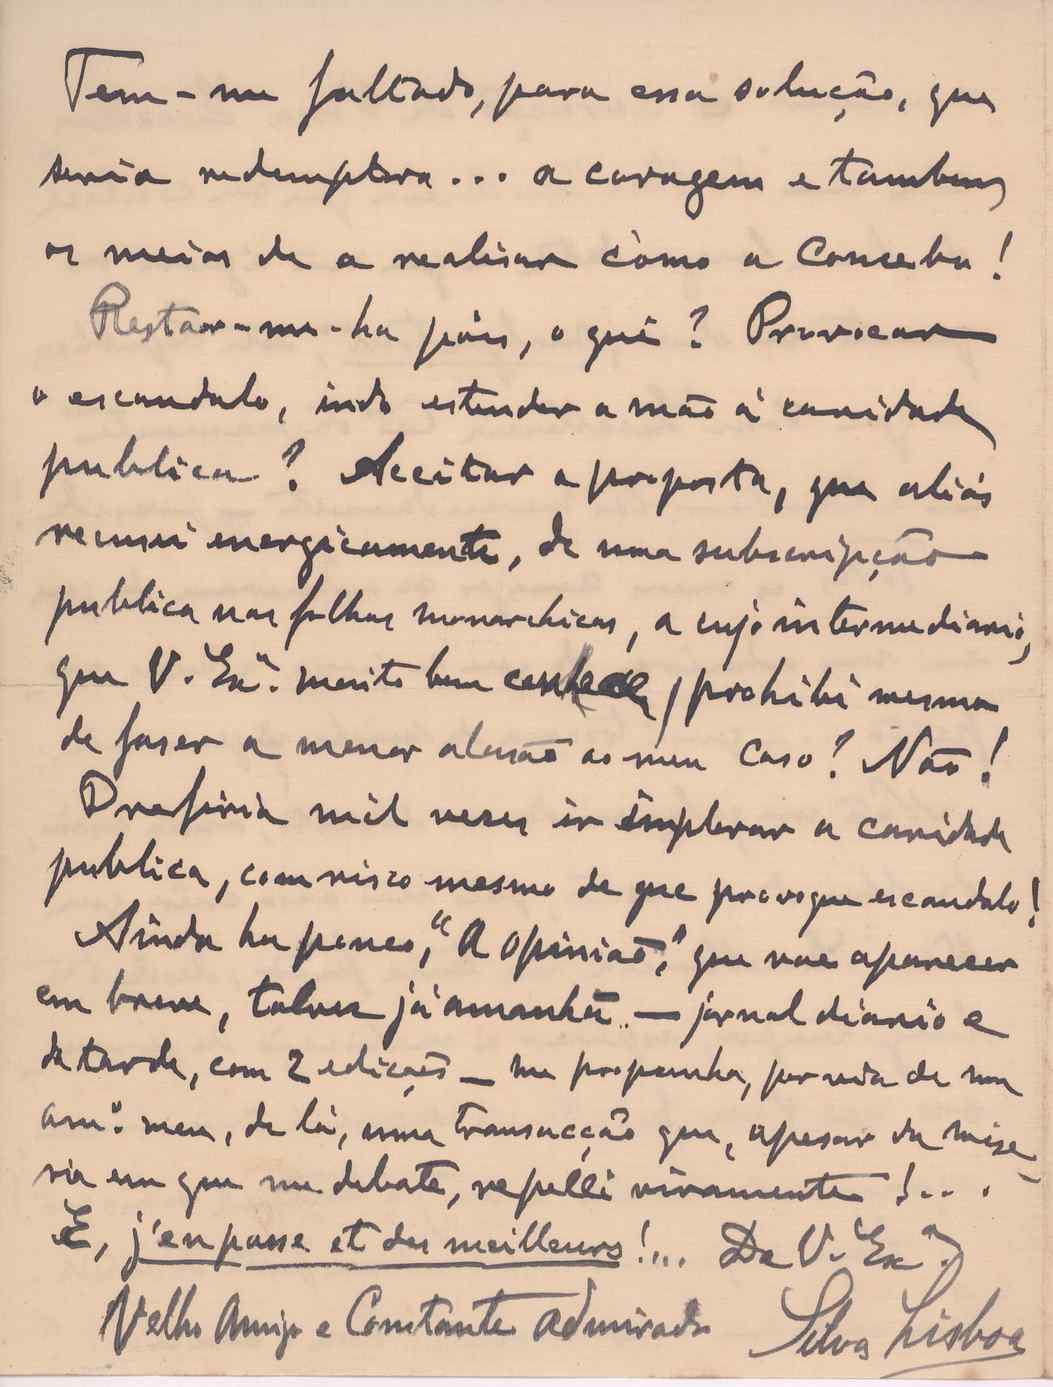 Tem-me faltado, para essa solução, que
seria redemptora... a coragem e tambem
os meios de a realisar como a concebu!
Restar-me-ha pois, o quê? Provocar
o escandalo, indo estender a mão á caridade
publica? Acceitar a proposta, que aliás
recusei energicamente, de uma subscripção
publica nas folhas monarchicas, a cujo intermediario,
que V. Exª. muito bem conhece, prohibi mesmo
de faser a menor alusão ao meu caso? Não!
Preferiria mil veses ir implorar a caridade
publica, com risco mesmo de que provoque escandalo!
Ainda ha pouco, "A Opinião," que vae aparecer
em breve, talvez já amanhã — jornal diario e
da tarde, com 2 edições — me propunha, por via de um
amº. meu, de lá, uma transacção que, apesar da mise-
ria em que me debato, repelli vivamente!...
E, j'en passe et des meilleurs!... De V. Exª.
Velho Amigo e Constante admirador Silva Lisboa